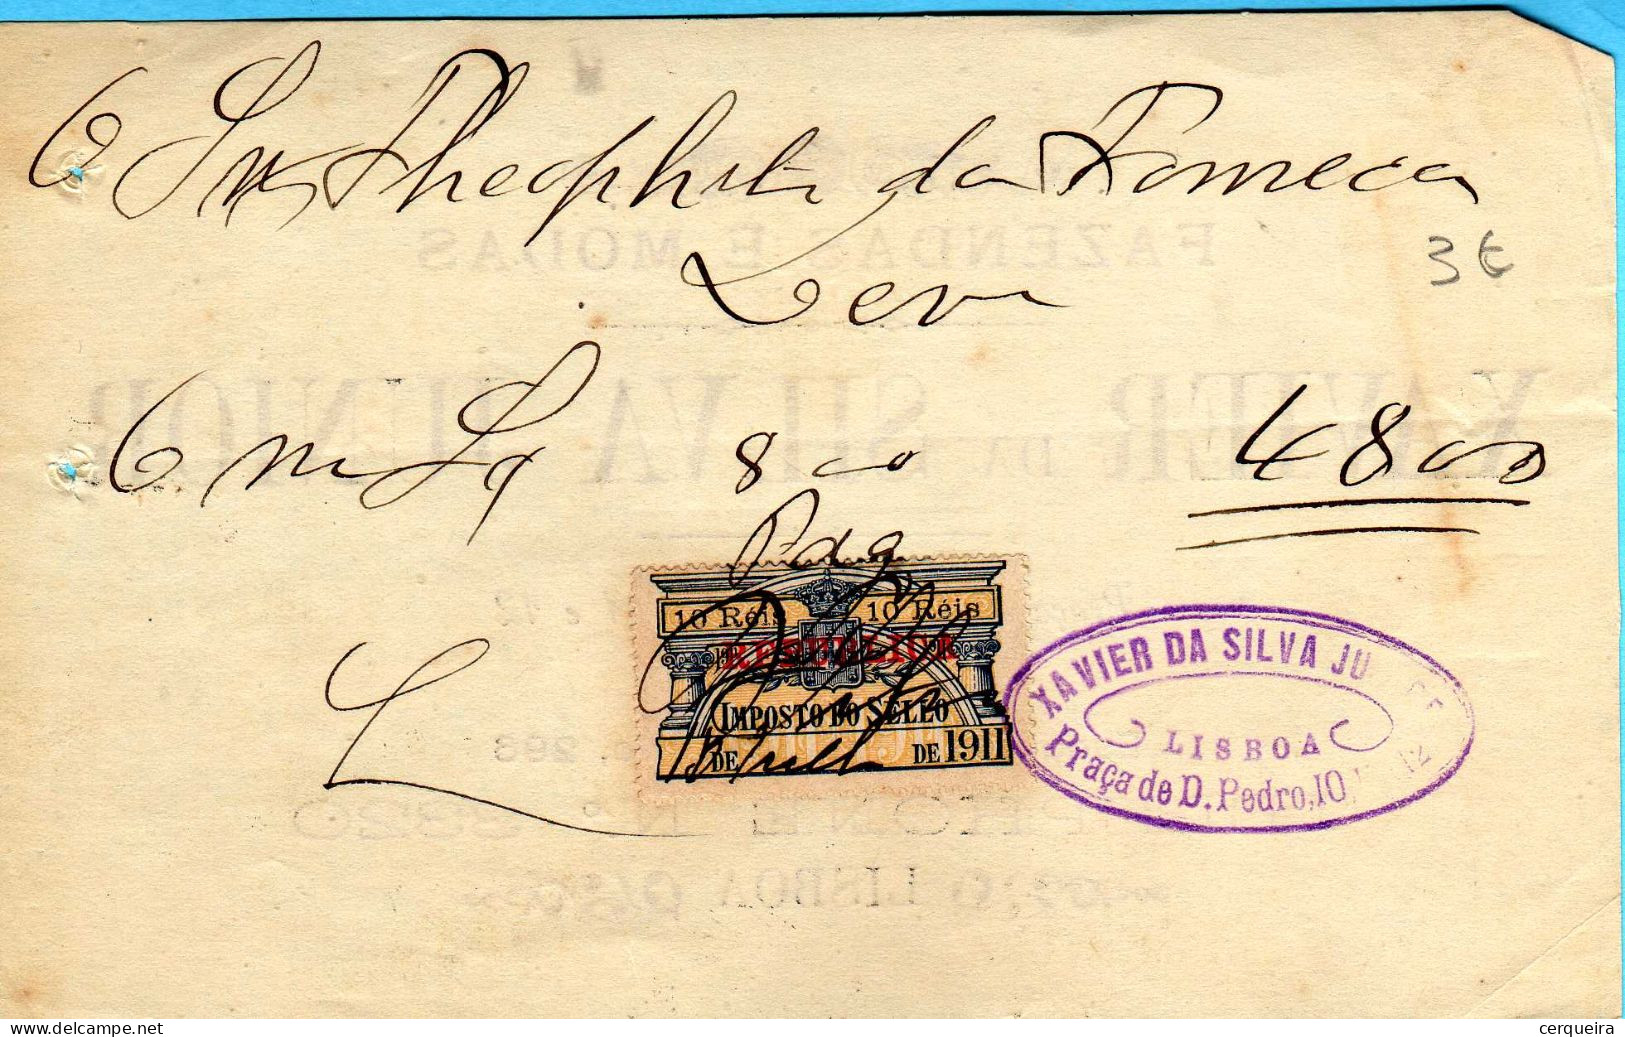 Snr Theophilo da Fonseca
Deve
6 m 800 4800
Pdg
3€
10 Réis 10 Réis
REPUBLICA
IMPOSTO DO SELLO
DE DE 1911
XAVIER DA SILVA JU
LISBOA
Praça de D. Pedro, 10, 12
FAZENDAS E MODAS
XAVIER DA SILVA JUNIOR
293
LISBOA
www.delcampe.net
cerqueira